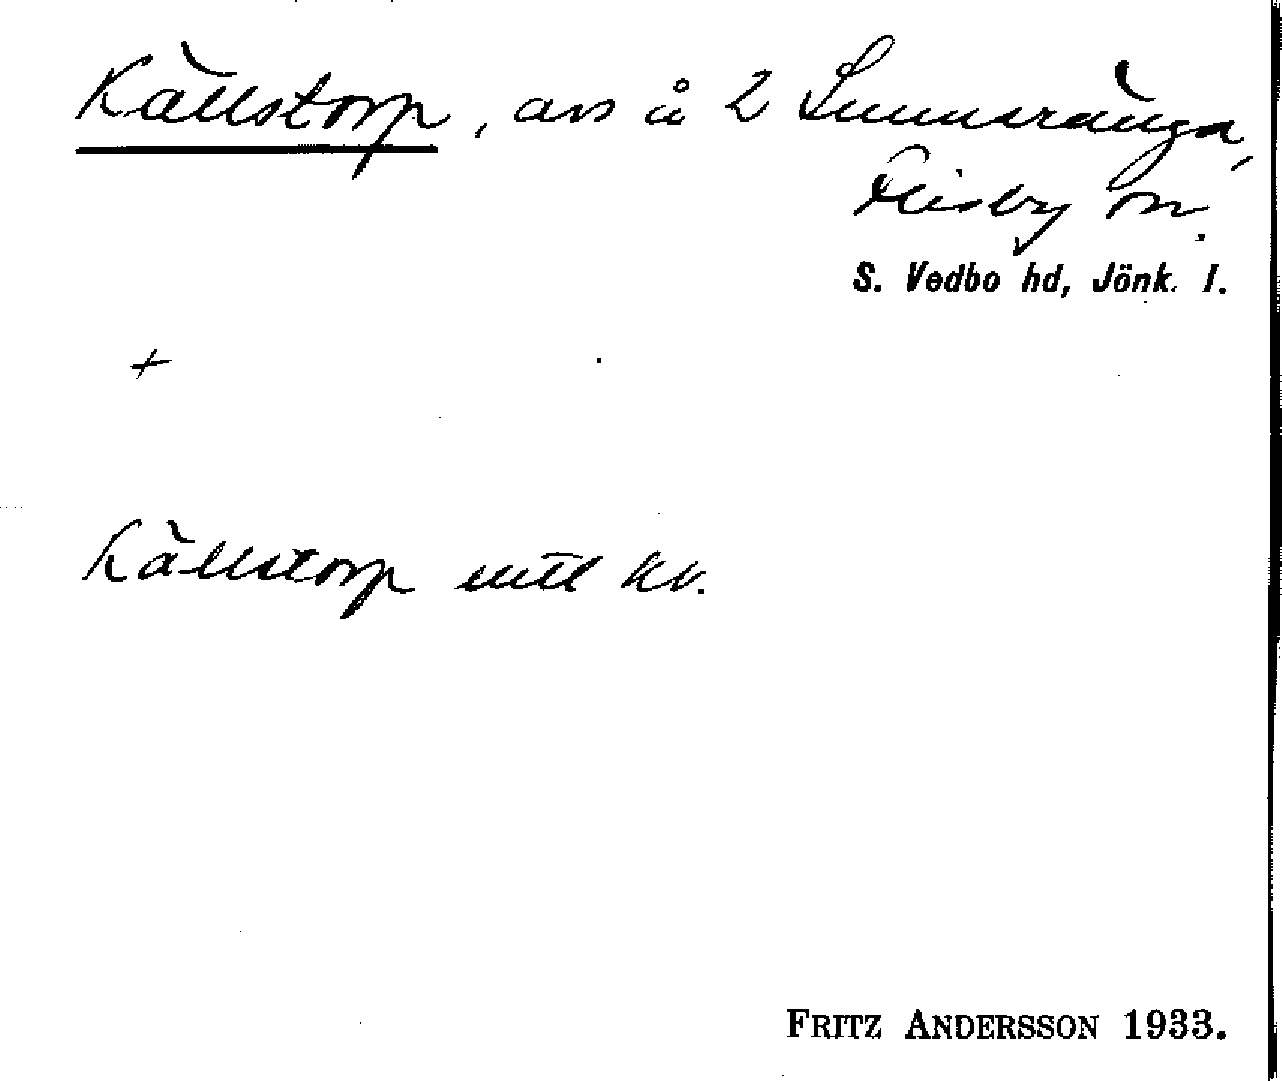 Källstorp, avs å 2 Sunneränga,
Flisby sn.
S. Vedbo hd, Jönk. l.
+
Källstorp uttl kv.
FRITZ ANDERSSON 1933.